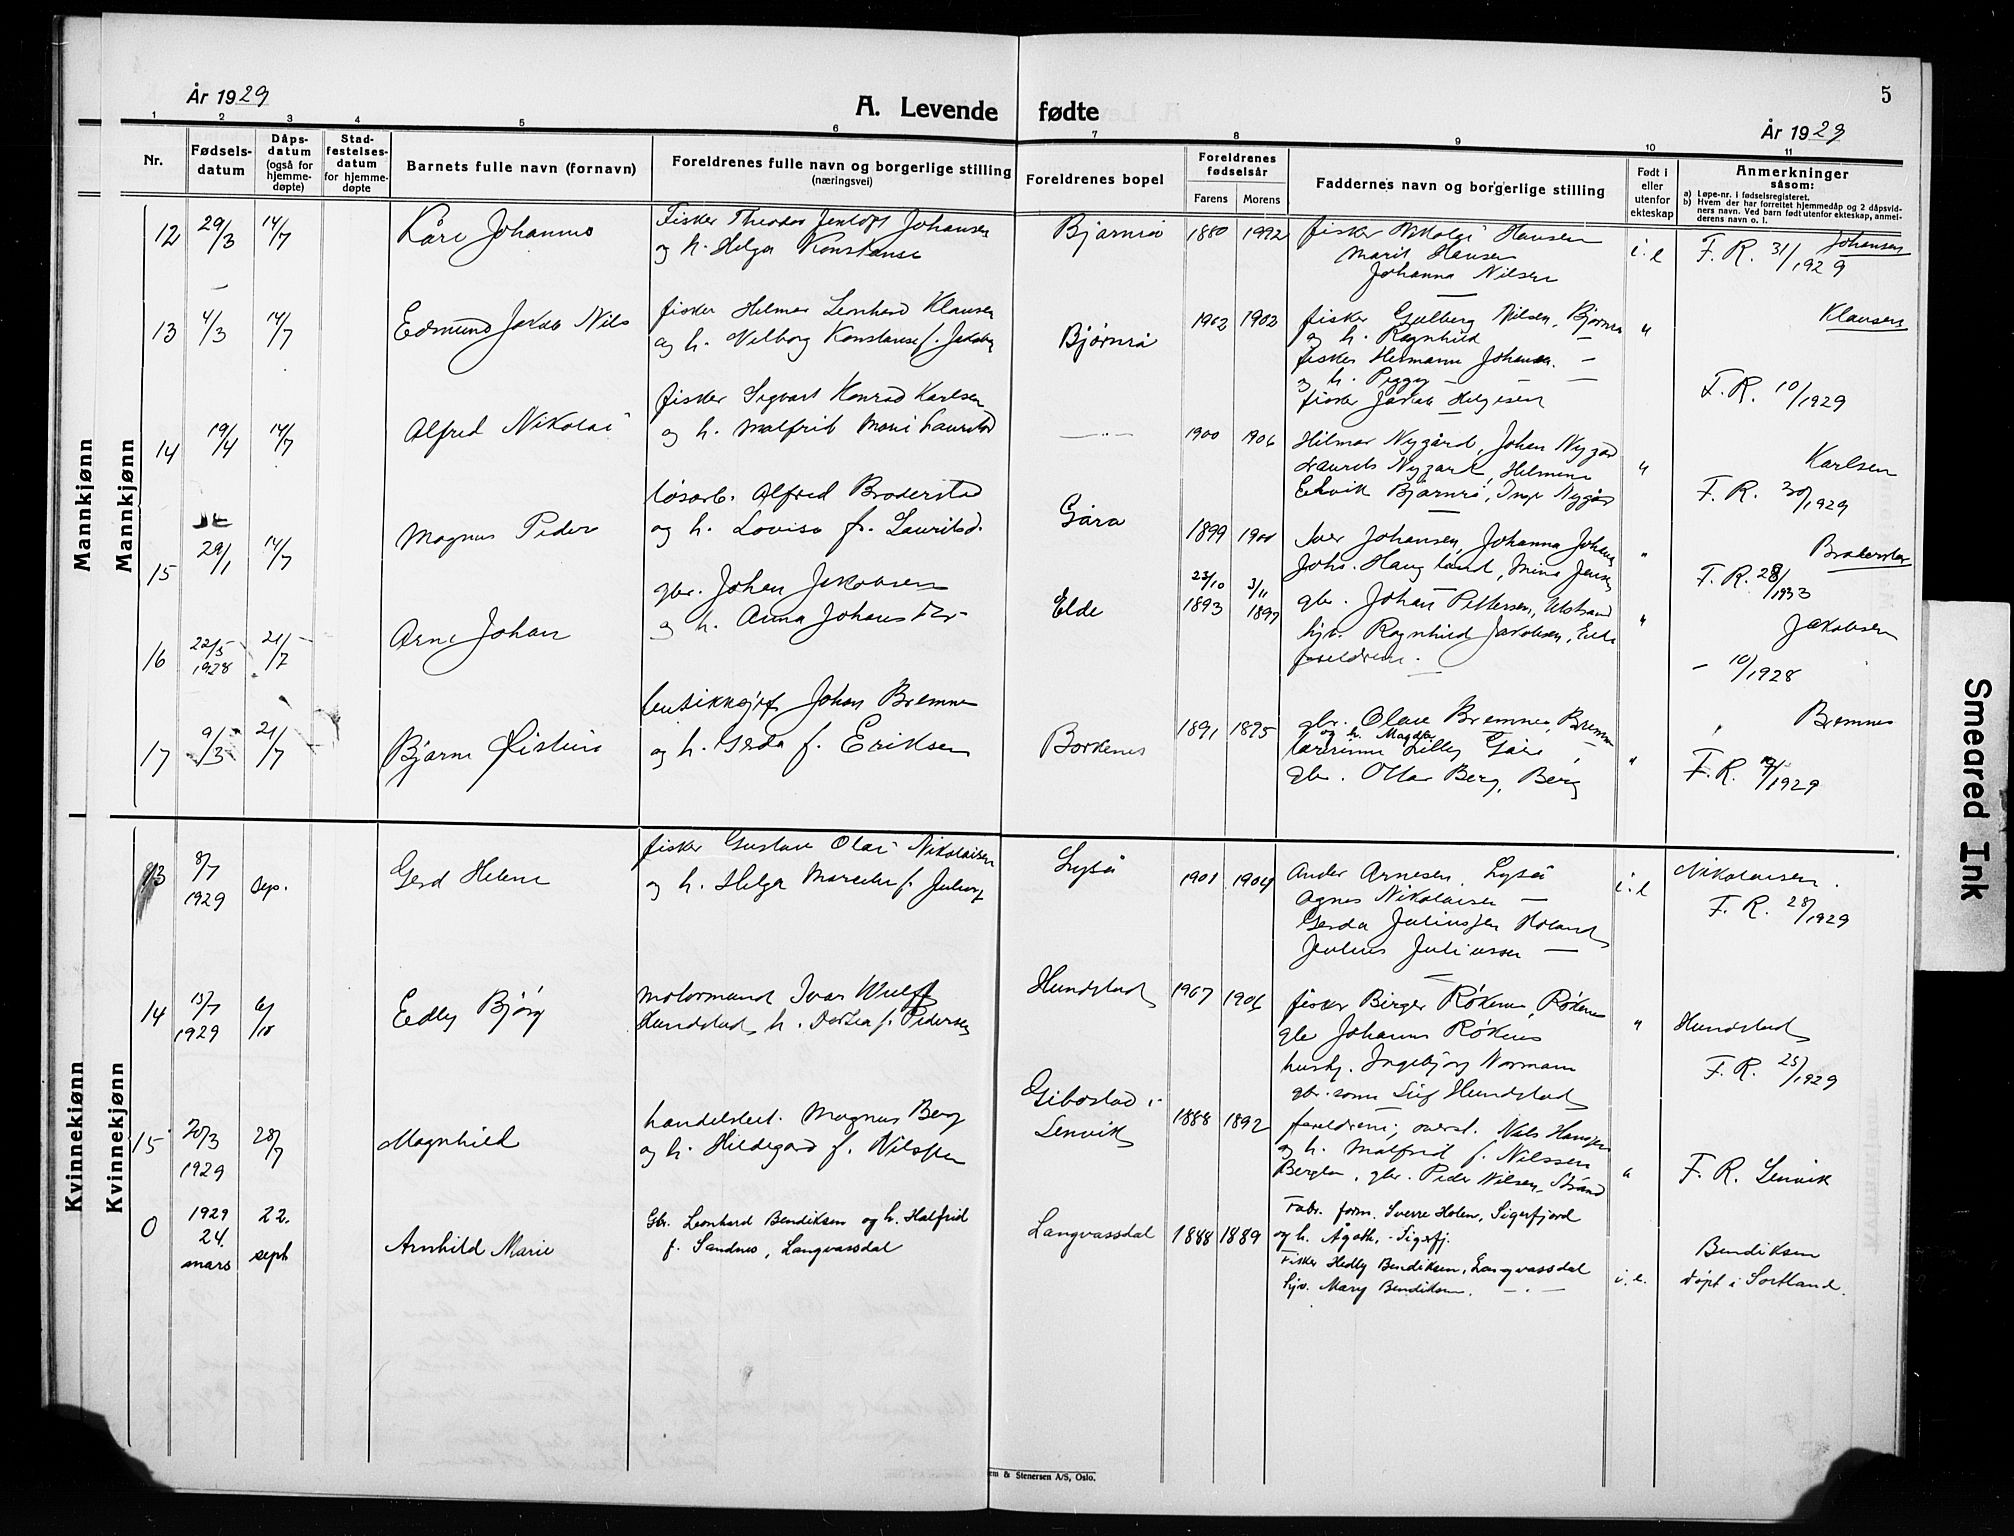 År 1929
A. Levende fødte
5
År 1929
1 2 3 4 5 6 7 8 9 10 11
Nr.
Fødsels-
datum
Dåps-
datum
(også for
hjemme-
døpte)
Stad-
festelses-
datum
for hjemme-
døpte
Barnets fulle navn (fornavn)
Foreldrenes fulle navn og borgerlige stilling
(næringsvei)
Foreldrenes bopel
Foreldrenes
fødselsår
Farens Morens
Faddernes navn og borgerlige stilling
Født i
eller
utenfor
ekteskap
Anmerkninger
såsom:
a) Løpe-nr. i fødselsregisteret.
b) Hvem der har forrettet hjemmedåp og 2 dåpsvid-
ners navn. Ved barn født utenfor ekteskap, anmel-
derens navn o. l.
Mannkjønn
Mannkjønn
12 29/3 14/7 Kåre Johannes
Fisker Theodor Jentoft Johansen
og h. Helga Konstanse
Bjørnrå 1880 1992
fisker Nikolai Hansen
Marit Hansen
Johanna Nilsen
i. e
Johansen
F. R. 31/1929
13 4/3 14/7 Edmund Jakob Nils
fisker Hilmar Leonhard Klausen
og h. Valborg Konstanse f. Jakobs
Bjørnrå 1902 1902
fisker Gulberg Nilsen, Bjørnrå
og h. Ragnhild
fisker Hermann Johansen. —
og h. Peggy — —
fisker Jakob Helgesen
"
Klausen
F. R. 10/1929
14 19/4 14/7 Alfred Nikolai
fisker Sigvart Konrad Karlsen
og h. Malfrid Marie Lauritsd
— " — 1900 1906
Hilmar Nygård, Johan Nygård
Laurits Nygård, Helmine
Bjørnrå, Inga Nygård
"
Karlsen
F. R. 30/1929
15 29/1 14/7 Magnus Peder
løsarb. Alfred Broderstad
og h. Lovise f. Lauritsd.
Gåra 1899 1900
Iver Johansen, Johanna Johans
Johs. Haugland, Mina Jensen
"
Broderstad
F. R. 28/1933
16 22/5 1928 21/7 Arne Johan
gbr. Johan Jakobsen
og h. Anna Johansdtr
Elde 23/10 1893 3/11 1897
gbr. Johan Pettersen, Ulstrand
hjv. Ragnhild Jakobsen, Elde
foreldrene.
"
Jakobsen
— 10/1928
17 9/3 21/7 Bjarne Øistein
Johan Bremnes
og h. Gerda f. Eriksen
Borkenes 1891 1895
gbr. Olav Bremnes, Bremnes
og h. Magda
lærerinne Lilly Gåre
gbr. Ottar Berg, Berg
"
Bremnes
F. R. /1929
Kvinnekjønn
Kvinnekjønn
13 8/7 1929 sep. Gerd Helene
fisker Gustav Olai Nikolaisen
og h. Helga Marelie f. Julius
Lyså 1901 1904
Ander Arnesen, Lyså
Agnes Nikolaisen —
Gerda Juliussen Holand
Julius Juliussen —
i. e
Nikolaisen.
F. R. 28/1929
14 13/7 1929 6/10 Edly Bjørg
Motormand Ivar Wulff
Hundstad, h. Dortea f. Pedersen
Hundstad 1907 1906
fisker Birger Røkenes, Røkenes
gbr Johannes Røkenes
hush. Ingebjørg Normann
gbr. sønn Sig Hundstad
"
Hundstad
F. R. 25/1929
15 20/3 1929 28/7 Magnhild
handelsbest. Magnus Berg
og h. Hildegard f. Nilssen
Gibostad i
Lenvik
1888 1892
foreldrene; overst. Nils Hanssen
og h. Malfrid f. Nilssen
Berglia, gbr. Peder Nilsen, Strand
"
F. R. Lenvik
0 1929 24. mars 22. sept Arnhild Marie
Gbr. Leonhard Bendiksen og h. Halfrid
f. Sandnes, Langvassdal
Langvassdal 1888 1889
Fabr. form. Sverre Holen, Sigerfjord
og h. Ågoth, - Sigerfj.
Fisker Hedly Bendiksen, Langvassdal
Hjv. Mary Bendiksen. — . —
i. e.
Bendiksen
døpt i Sortland.
em & Stenersen A/S, Oslo.
Smeared Ink